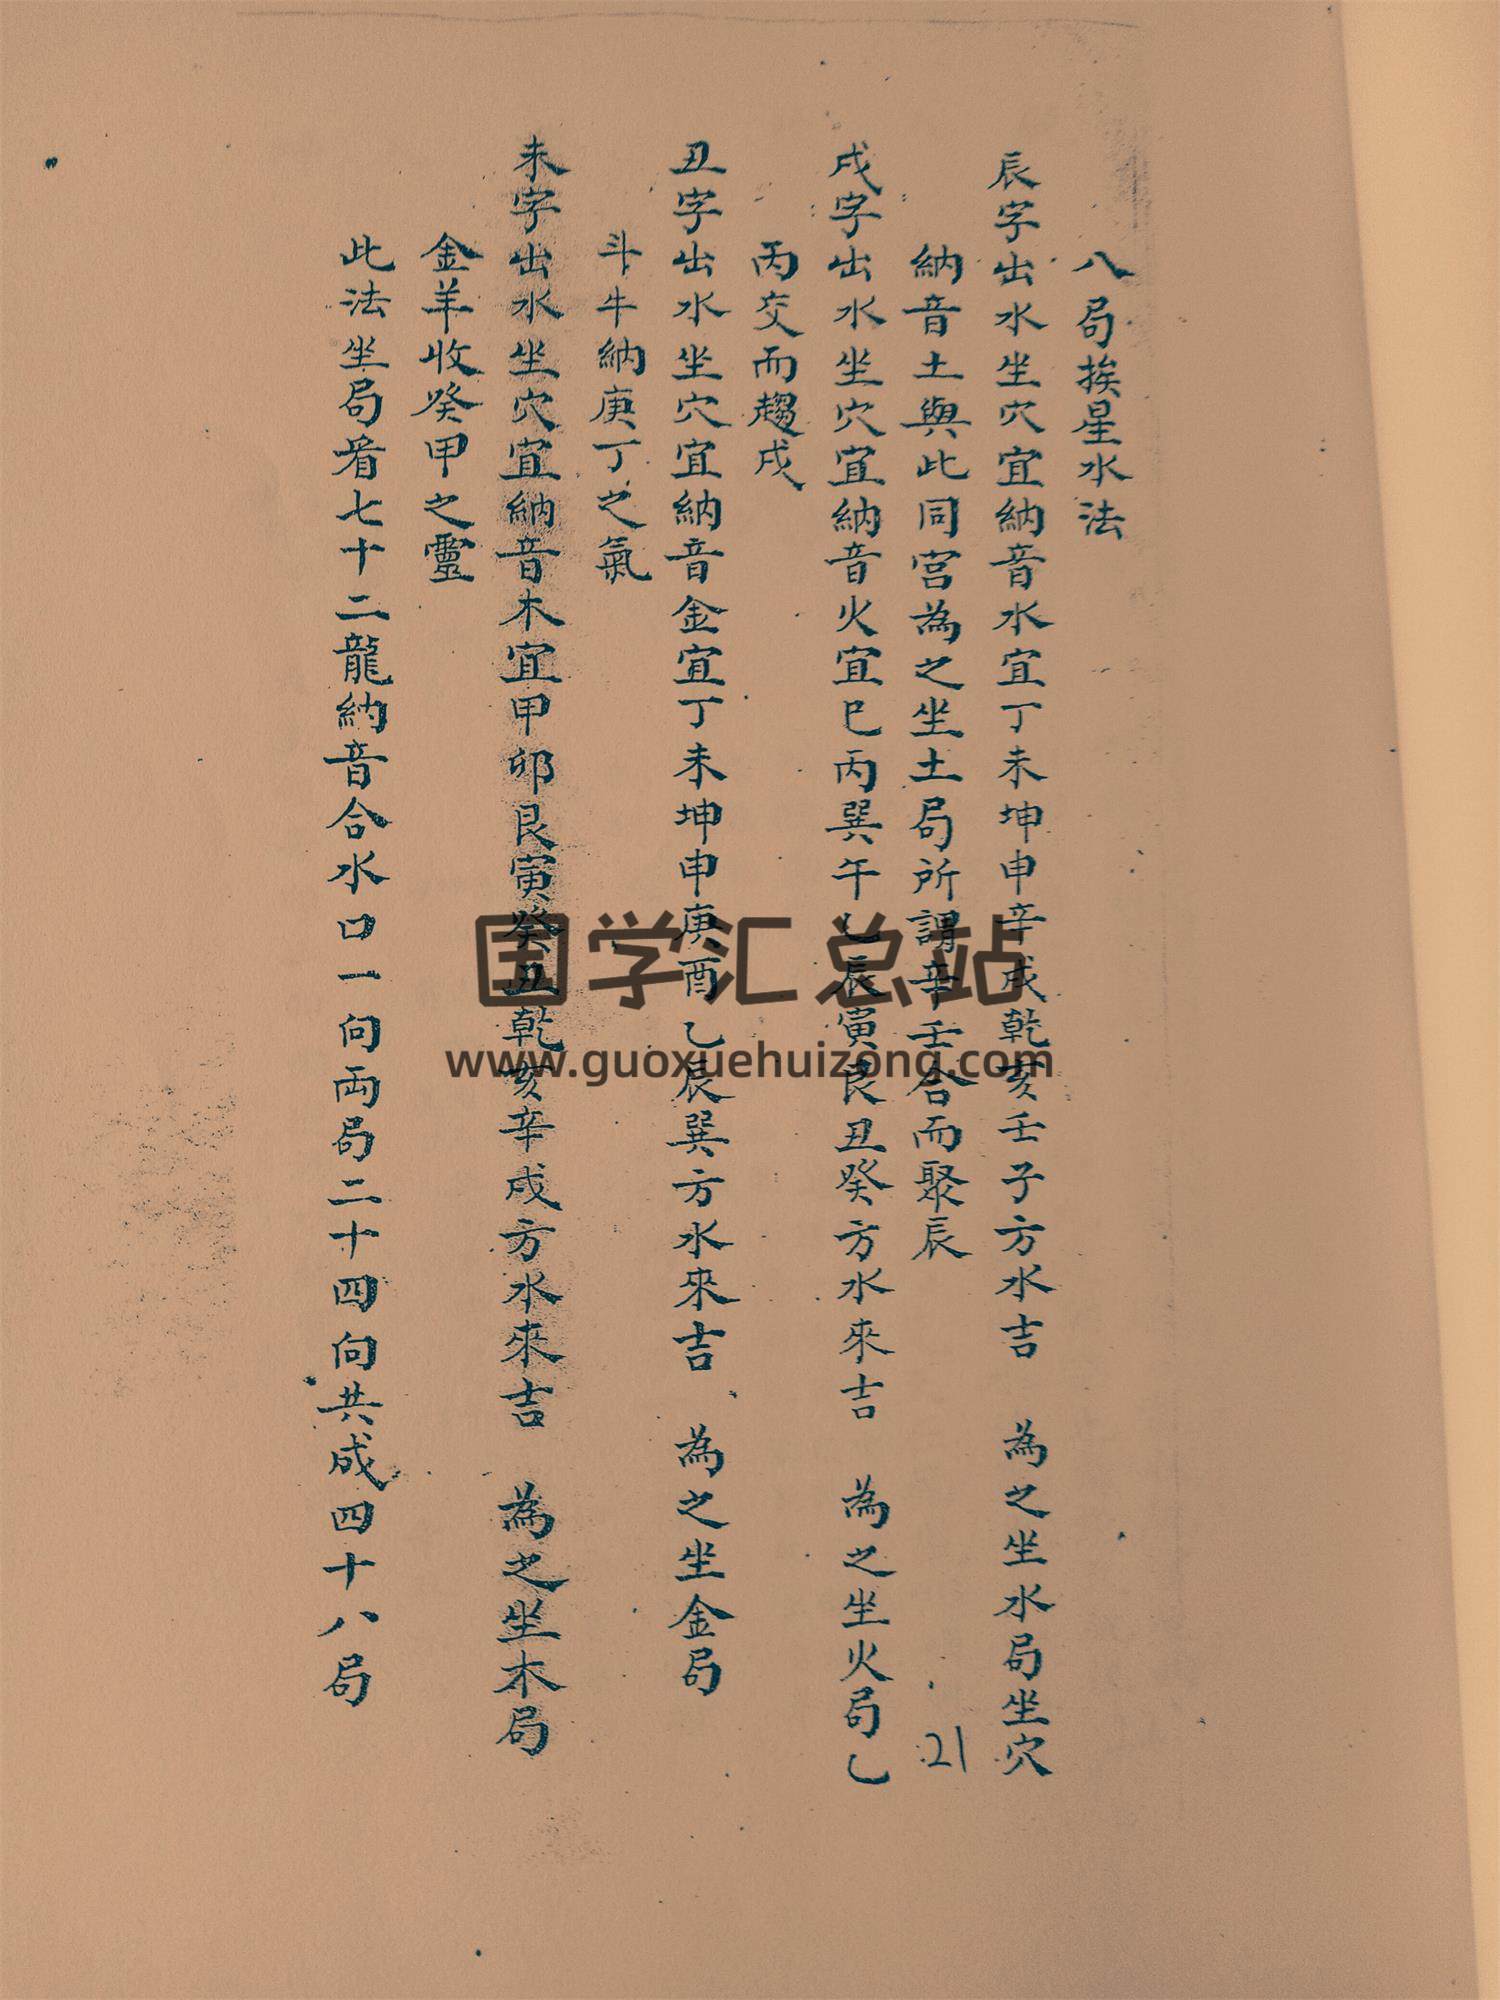 八局挨星水法
辰字出水坐穴宜納音水宜丁未坤申辛戌乾亥壬子方水吉　為之坐水局坐穴
納音土與此同宮為之坐土局所謂辛壬合而聚辰
戌字出水坐穴宜納音火宜巳丙巽午乙辰寅艮丑癸方水來吉　為之坐火局乙
丙交而趨戌
丑字出水坐穴宜納音金宜丁未坤申庚酉乙辰巽方水來吉　為之坐金局
斗牛納庚丁之氣
未字出水坐穴宜納音木宜甲卯艮寅癸丑乾亥辛戌方水來吉　為之坐木局
金羊收癸甲之靈
此法坐局看七十二龍納音合水口一向両局二十四向共成四十八局
21
国学汇总站
www.guoxuehuizong.com